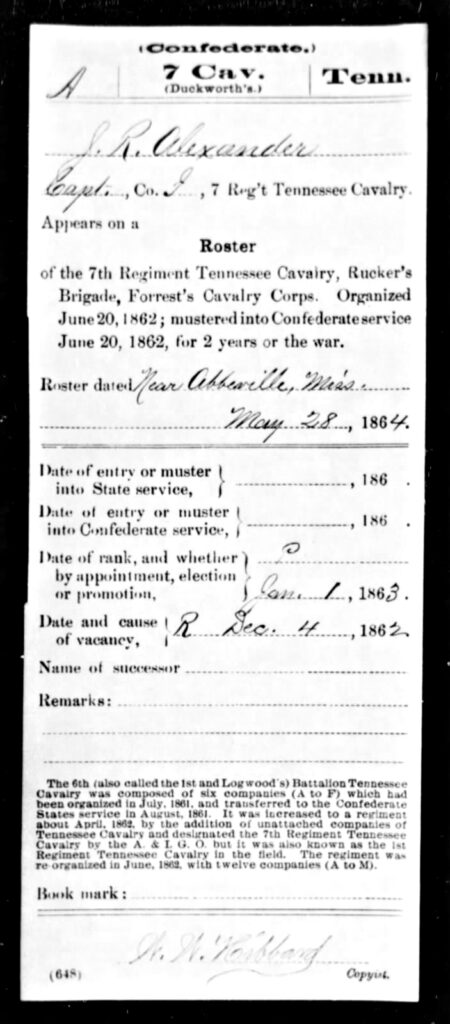 (Confederate.)
A 7 Cav. Tenn.
(Duckworth's.)
J. R. Alexander
Capt., Co. I, 7 Reg't Tennessee Cavalry.
Appears on a
Roster
of the 7th Regiment Tennessee Cavalry, Rucker's
Brigade, Forrest's Cavalry Corps. Organized
June 20, 1862; mustered into Confederate service
June 20, 1862, for 2 years or the war.
Roster dated Near Abbeville, Miss.
May 28, 1864.
Date of entry or muster
into State service, , 186 .
Date of entry or muster
into Confederate service, , 186 .
Date of rank, and whether P
by appointment, election
or promotion, Jan. 1, 1863.
Date and cause
of vacancy, R Dec. 4, 1862
Name of successor
Remarks:
The 6th (also called the 1st and Logwood's) Battalion Tennessee
Cavalry was composed of six companies (A to F) which had
been organized in July, 1861, and transferred to the Confederate
States service in August, 1861. It was increased to a regiment
about April, 1862, by the addition of unattached companies of
Tennessee Cavalry and designated the 7th Regiment Tennessee
Cavalry by the A. & I. G. O. but it was also known as the 1st
Regiment Tennessee Cavalry in the field. The regiment was
re-organized in June, 1862, with twelve companies (A to M).
Book mark:
W. W. Hibbard
(648) Copyist.